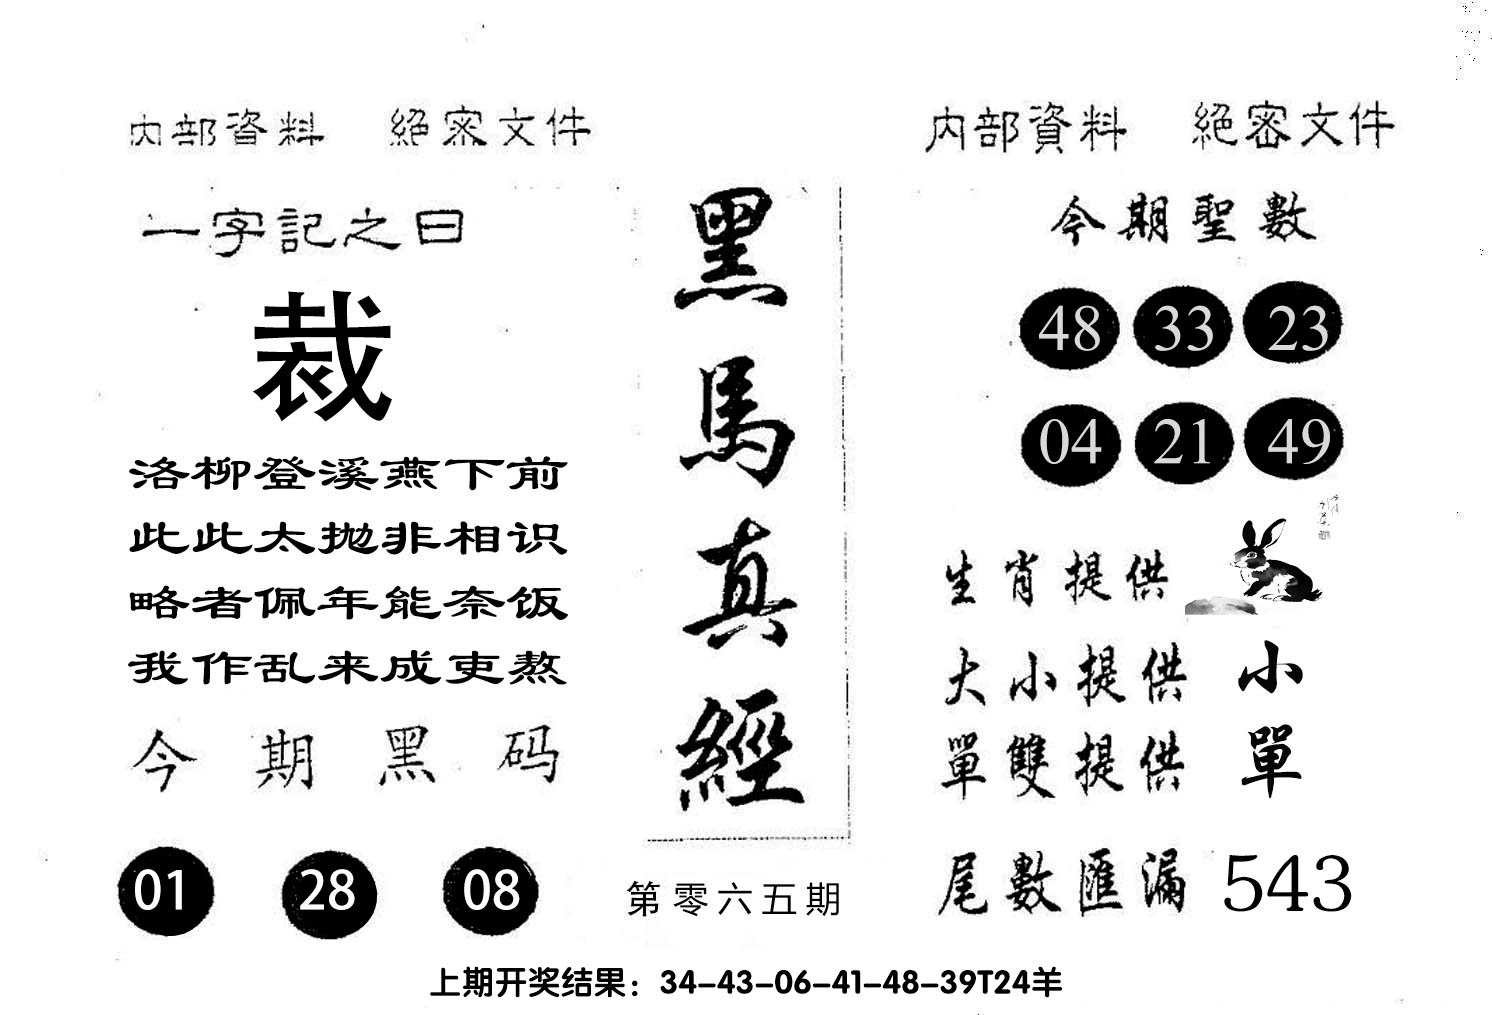 内部資料 絕密文件
一字記之曰
裁
洛柳登溪燕下前
此此太抛非相识
略者佩年能奈饭
我作乱来成吏熬
今期黑码
01 28 08
黑馬真經
第零六五期
内部資料 絕密文件
今期聖數
48 33 23
04 21 49
生肖提供
大小提供 小
單雙提供 單
尾數匯漏 543
上期开奖结果：34-43-06-41-48-39T24羊